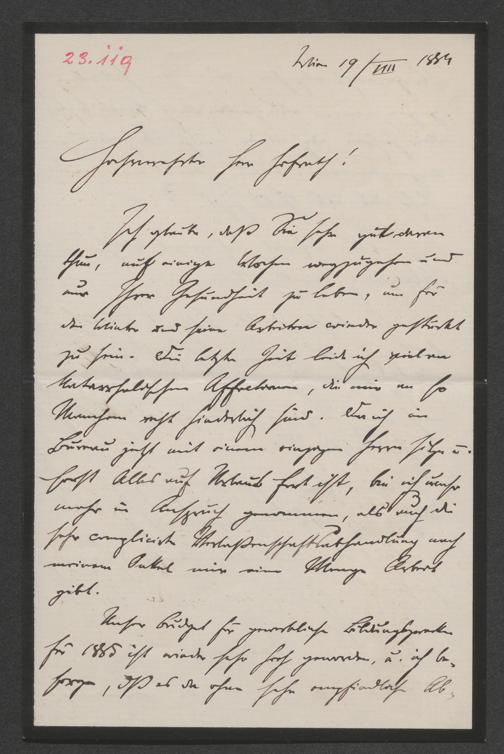 23.119
Wien 19/VIII 1884
Hochverehrter Herr Hofrath!
Ich glaube, daß Sie sehr gut daran
thun, auf einige Wochen wegzugehen und
nur Ihrer Gesundheit zu leben, um für
den Winter und seine Arbeiten wieder gestärkt
zu sein. Die letzte Zeit leide ich viel an
katarrhalischen Affectionen, die mir an so
Manchem recht hinderlich sind. Da ich im
Bureau jetzt mit einem einzigen Herrn sitze u.
sonst Alles auf Urlaub fort ist, bin ich umso
mehr in Anspruch genommen, als auch die
sehr complicirte Verlassenschaftsabhandlung nach
meinem Onkel mir eine Menge Arbeit
gibt.
Unser Budget für gewerbliche Bildungszwecke
für 1885 ist wieder sehr hoch geworden, u. ich be-
sorge, daß es da ohne sehr empfindliche Ab-